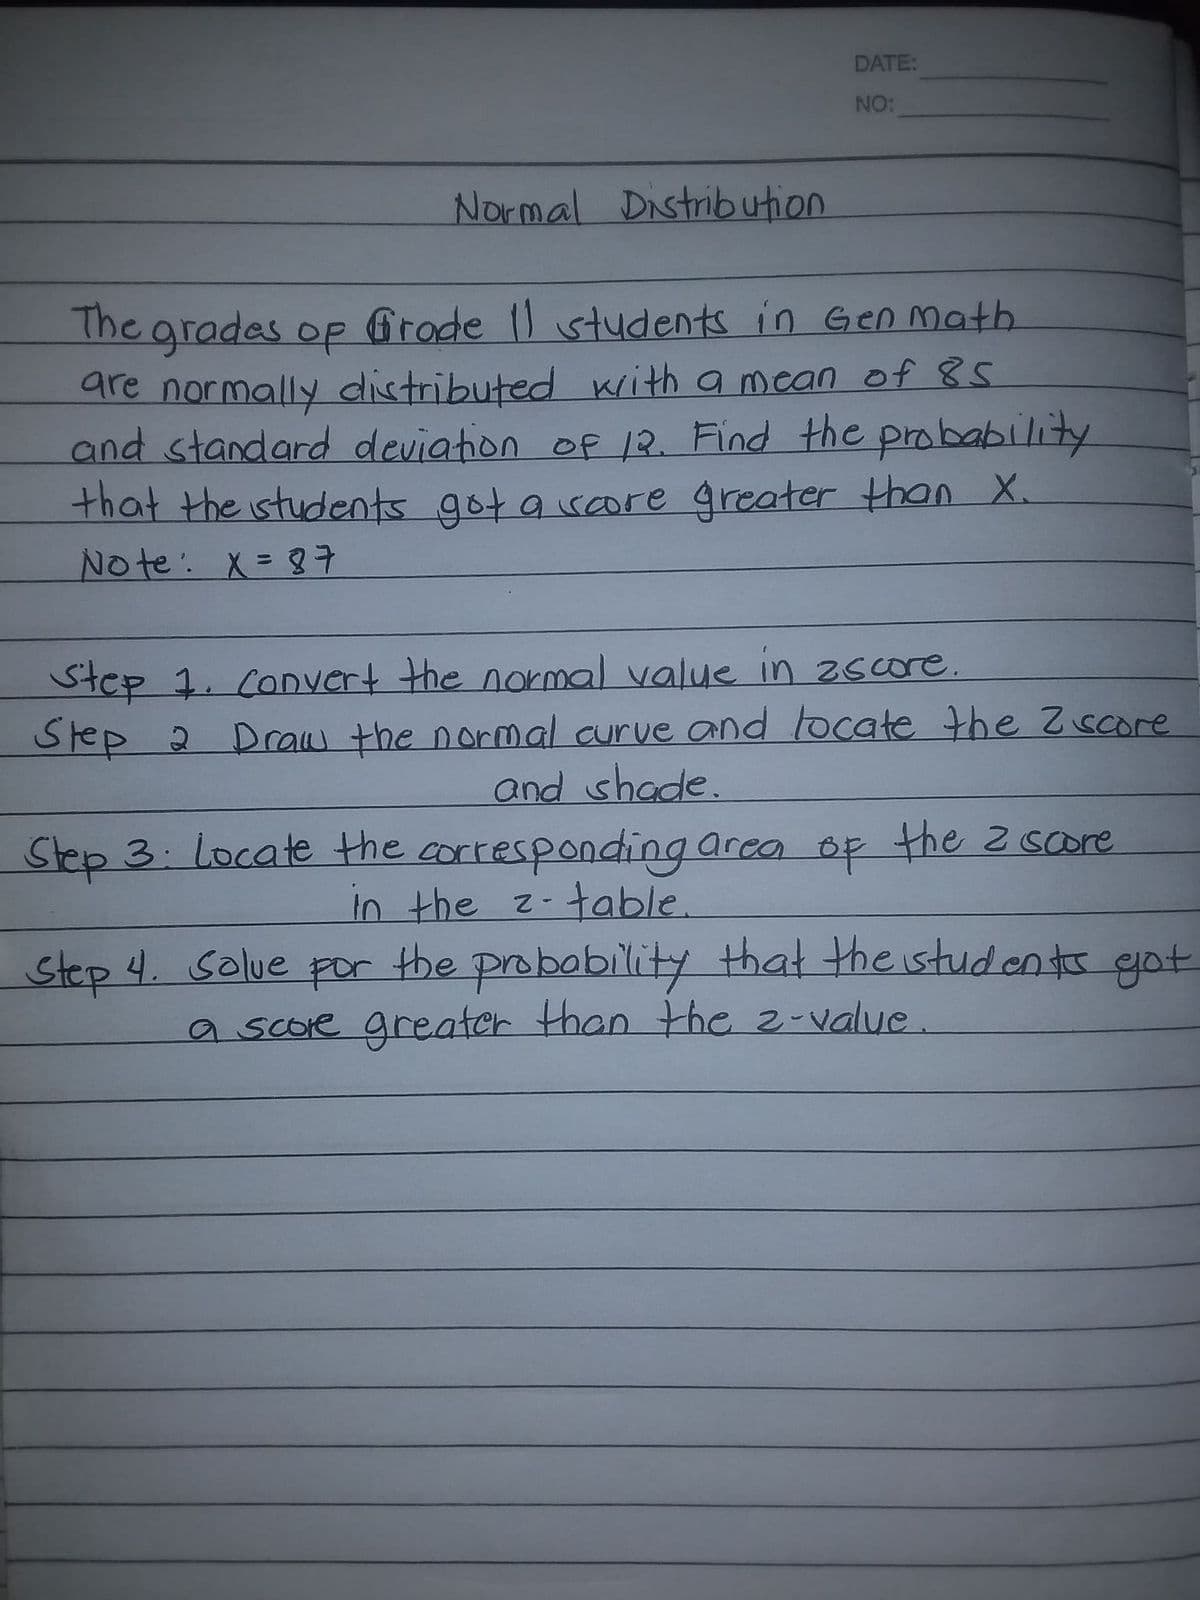 DATE:
NO:
Normal Distribution
The grades of Grade 11 students in Gen Math
are normally distributed with a mean of 85
and standard deviation of 12. Find the probability
that the students got a score greater than X.
Note: X = 87
Step 1. Convert the normal value in zscore.
Step 2 Draw the normal curve and locate the Z score
and shade.
Step 3: Locate the corresponding area of the z score
in the z-table.
Step 4. Solve for the probability that the students got
a score greater than the z-value.